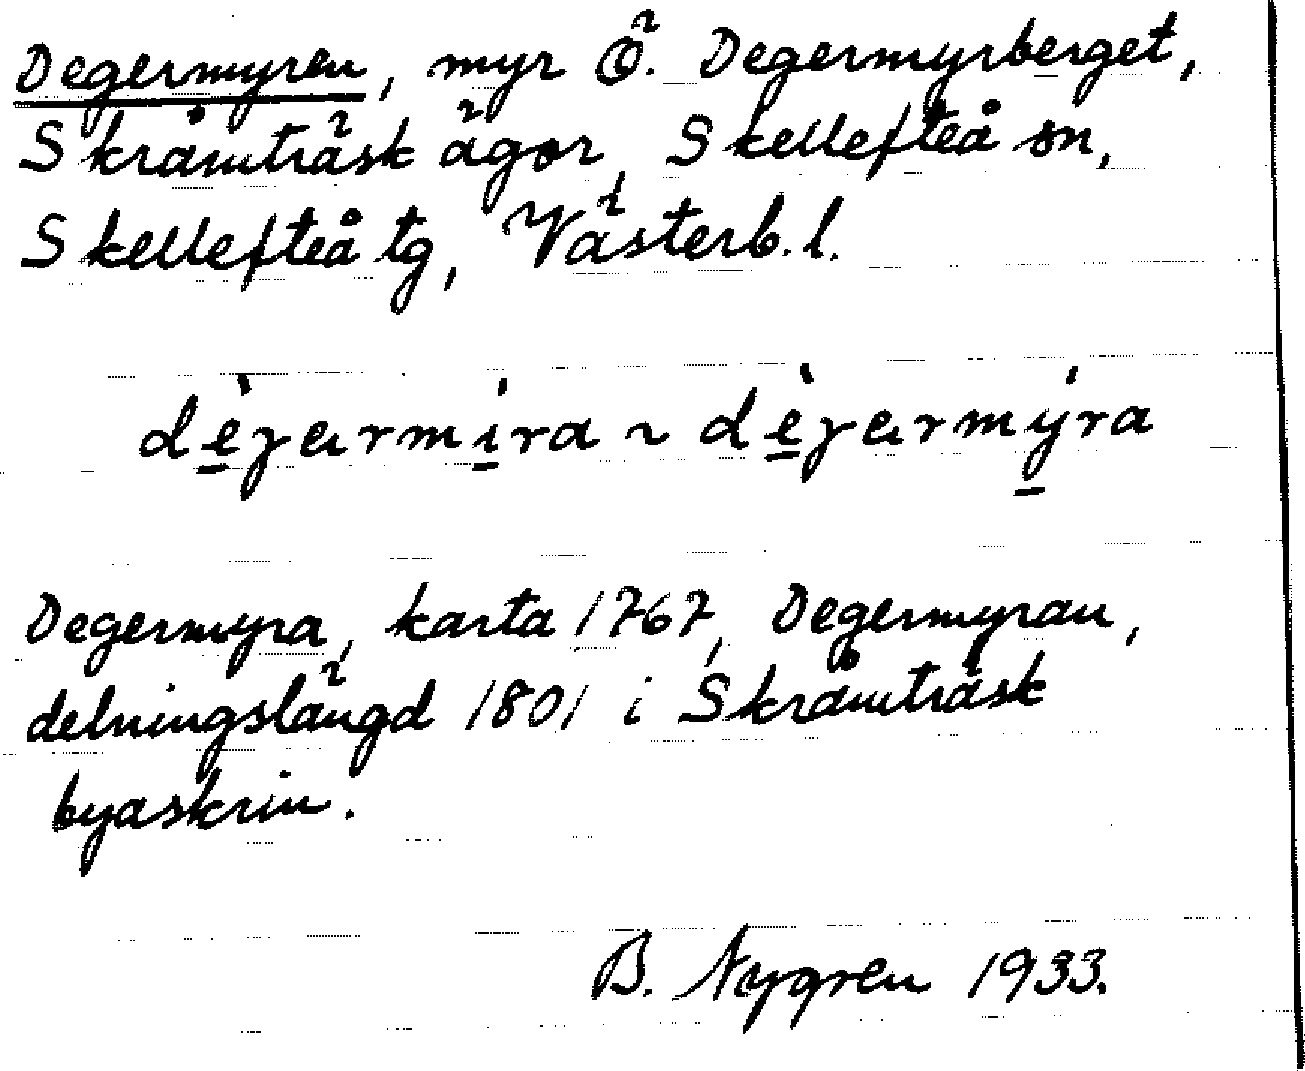 Degermyren, myr Ö. Degermyrberget,
Skråmträsk ägor, Skellefteå sn,
Skellefteå tg, Västerb. l.
dè̱ɣɑrmi̱ra ~ dè̱ɣɑrmý̱ra
Degermyra, karta 1767, Degermyran,
delningslängd 1801 i Skråmträsk
byaskrin.
B. Nygren 1933.